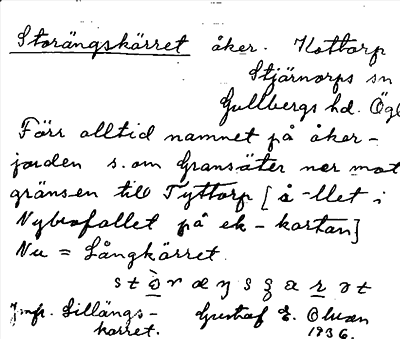 Storängskärret åker. Kottorp
Stjärnorps sn
Gullbergs hd. Ögl
Förr alltid namnet på åker-
jorden s.om Gransäter ner mot
gränsen till Tyttorp [å-llet i
Nybrofallet på ek-kartan]
Nu = Långkärret.
Jmfr. Lillängs- Gustaf E. Olsson
kärret. 1936.